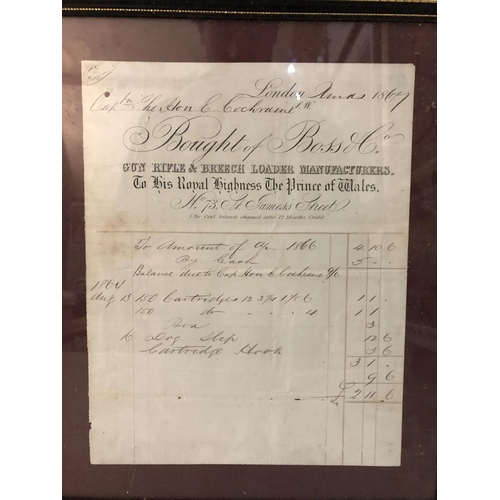 London Xmas 1867
Capt The Hon E Cochrane R.N.
Bought of Boss & Co
GUN RIFLE & BREECH LOADER MANUFACTURERS.
To His Royal Highness The Prince of Wales.
No 73, St James's Street
5 Per Cent Interest charged after 12 Months Credit
To Amount of a/c 1866 4 10 6
By Cash 5 " "
Balance due to Cap Hon E Cochrane 9/6
1867
Aug 13 150 Cartridges 12 1 1 "
150 do 4 1 1 "
Box 3
16 Dog Slip 12 6
Cartridge Hook 3 6
3 1 "
9 6
£ 2 11 6